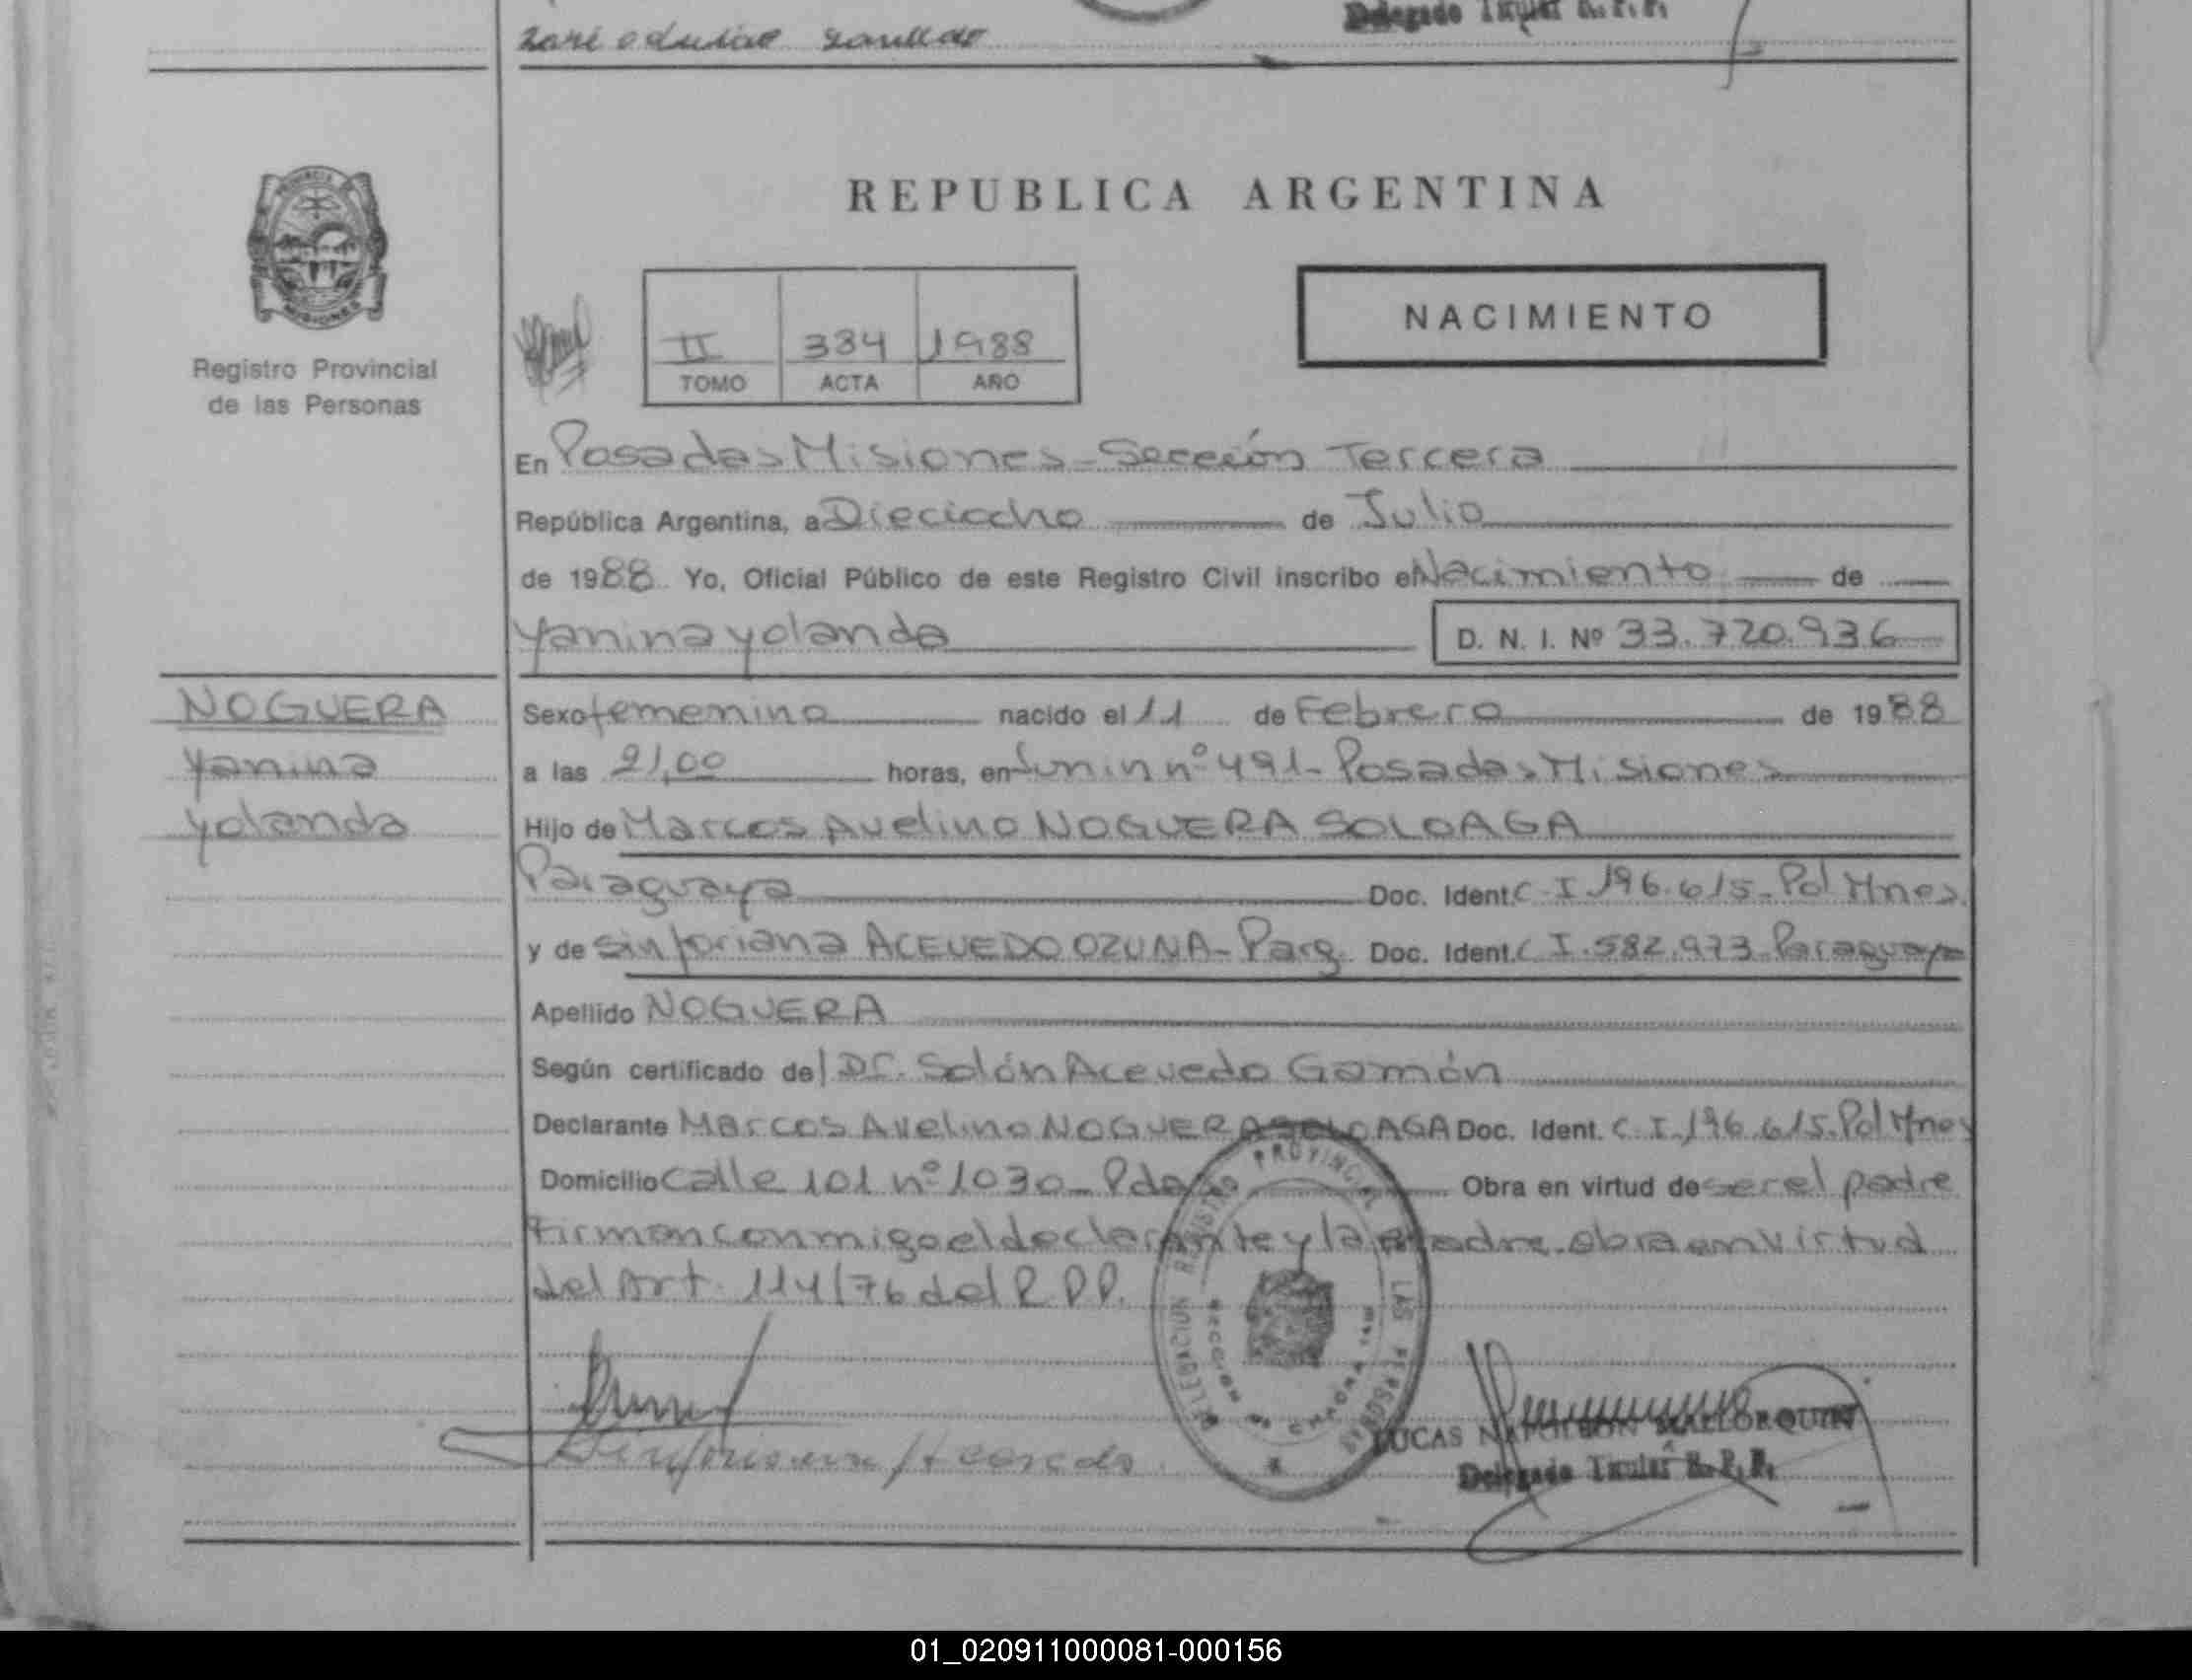 Delegado Titular R.P.P.
PROVINCIA
MISIONES
Registro Provincial
de las Personas
REPUBLICA ARGENTINA
II 384 1988
TOMO ACTA AÑO
NACIMIENTO
En Posadas Misiones - Sección Tercera
República Argentina, a Dieciocho de Julio
de 1988 Yo, Oficial Público de este Registro Civil inscribo el Nacimiento de
Yanina Yolanda D. N. I. Nº 33.720.936
NOGUERA
Yanina
Yolanda
Sexo femenino nacido el 11 de Febrero de 1988
a las 21,00 horas, en Junin nº 491- Posadas Misiones
Hijo de Marcos Avelino NOGUERA SOLOAGA
Paraguaya Doc. Ident. C.I. 196.615- Pol Mnes.
y de Sinforiana ACEVEDO OZUNA- Parg. Doc. Ident. C.I. 582.973 Paraguaya
Apellido NOGUERA
Según certificado del Dr. Solón Acevedo Gamón
Declarante Marcos Avelino NOGUERA SOLOAGA Doc. Ident. C.I. 196.615. Pol Mnes
Domicilio calle 101 nº 1030- Pdas Obra en virtud de ser el padre
Firman conmigo el declarante y la madre. obra en virtud
del Art. 114/76 del R.P.P.
DELEGACION REGISTRO PROVINCIAL DE LAS PERSONAS
SECCION
Sinforiana Acevedo
LUCAS NAPOLEON MALLORQUIN
Delegado Titular R.P.P.
01_020911000081-000156